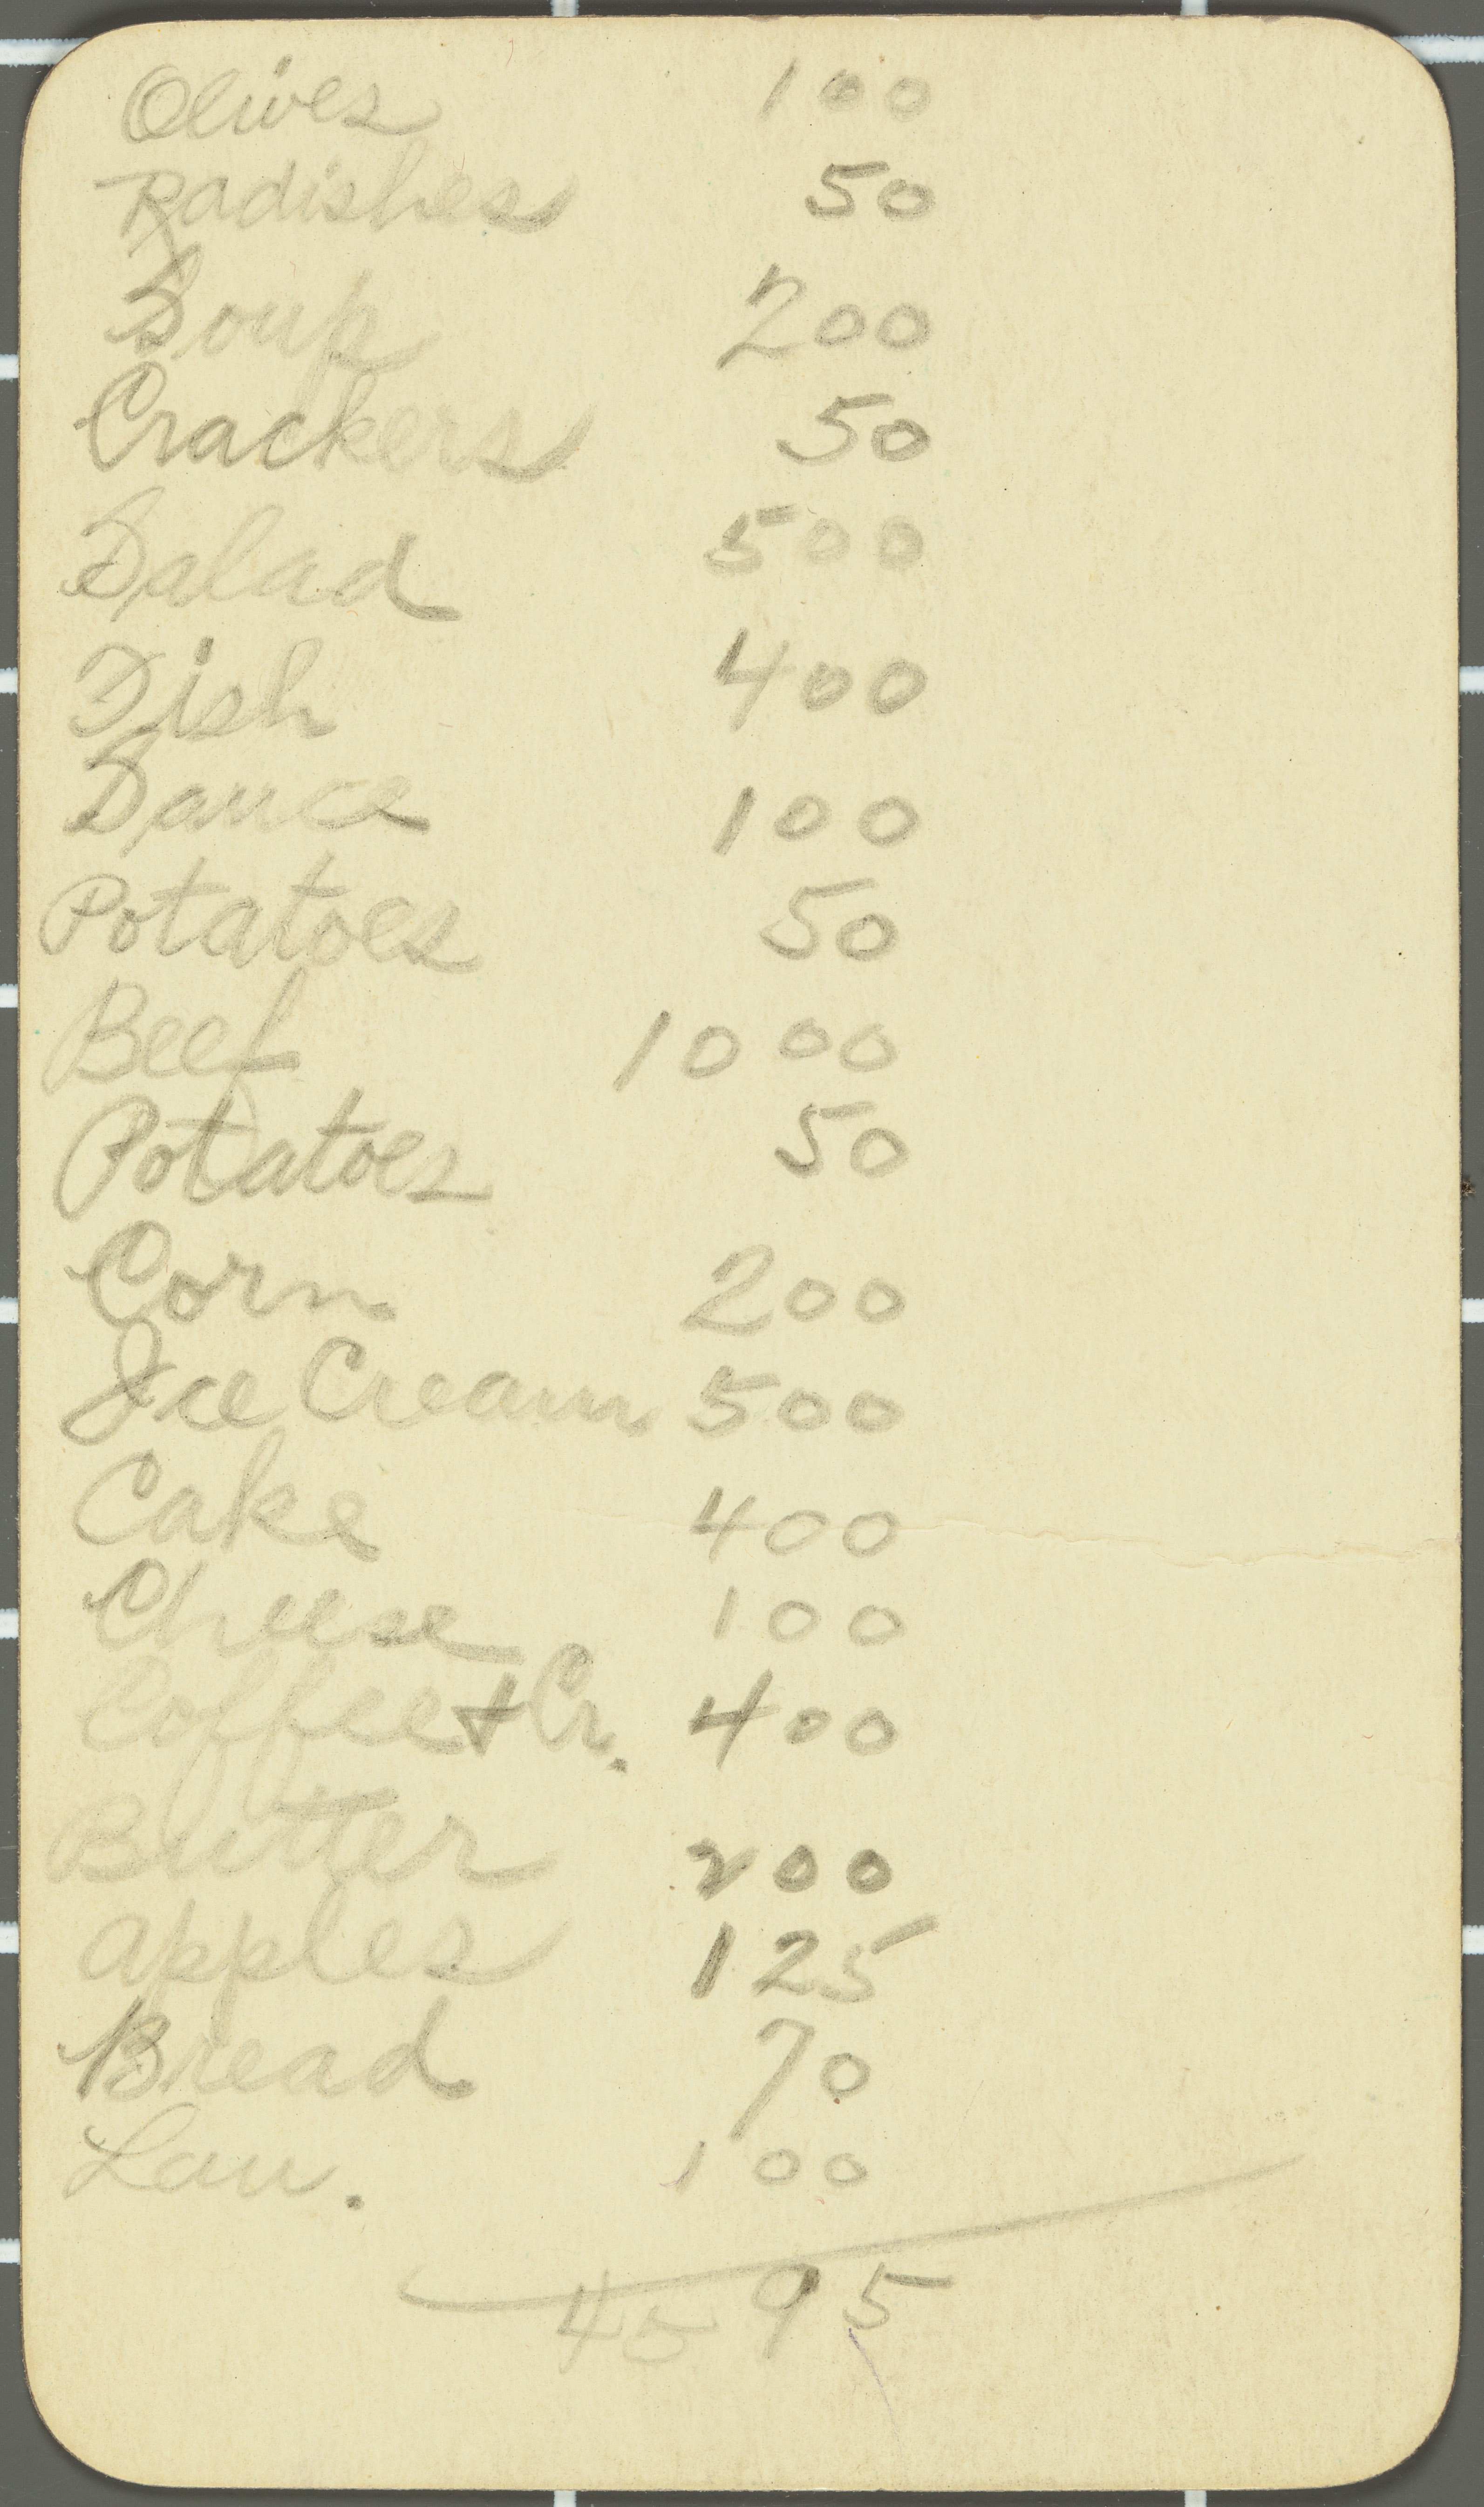 Olives 100
Radishes 50
Soup 200
Crackers 50
Salad 500
Fish 400
Sauce 100
Potatoes 50
Beef 1000
Potatoes 50
Corn 200
Ice Cream 500
Cake 400
Cheese 100
Coffee + Cr. 400
Butter 200
apples 125
Bread 70
Lau. 100
4595